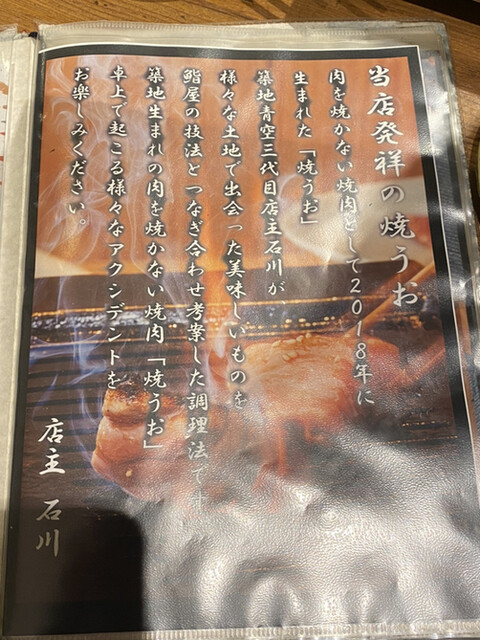 当店発祥の焼うお
肉を焼かない焼肉として2018年に
生まれた「焼うお」
築地青空三代目店主石川が、
様々な土地で出会った美味しいものを
鮨屋の技法とつなぎ合わせ考案した調理法です
築地生まれの肉を焼かない焼肉「焼うお」
卓上で起こる様々なアクシデントを
お楽しみください。
店主 石川